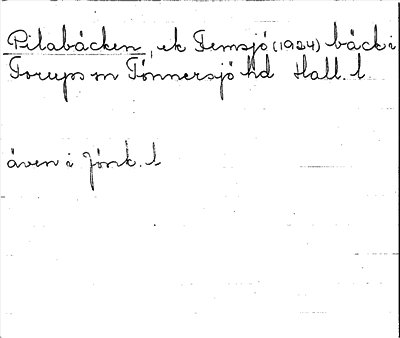 Pilabäcken, ek Femsjö (1924) bäck i
Torups sn Tönnersjö hd Hall. l
även i Jönk. l